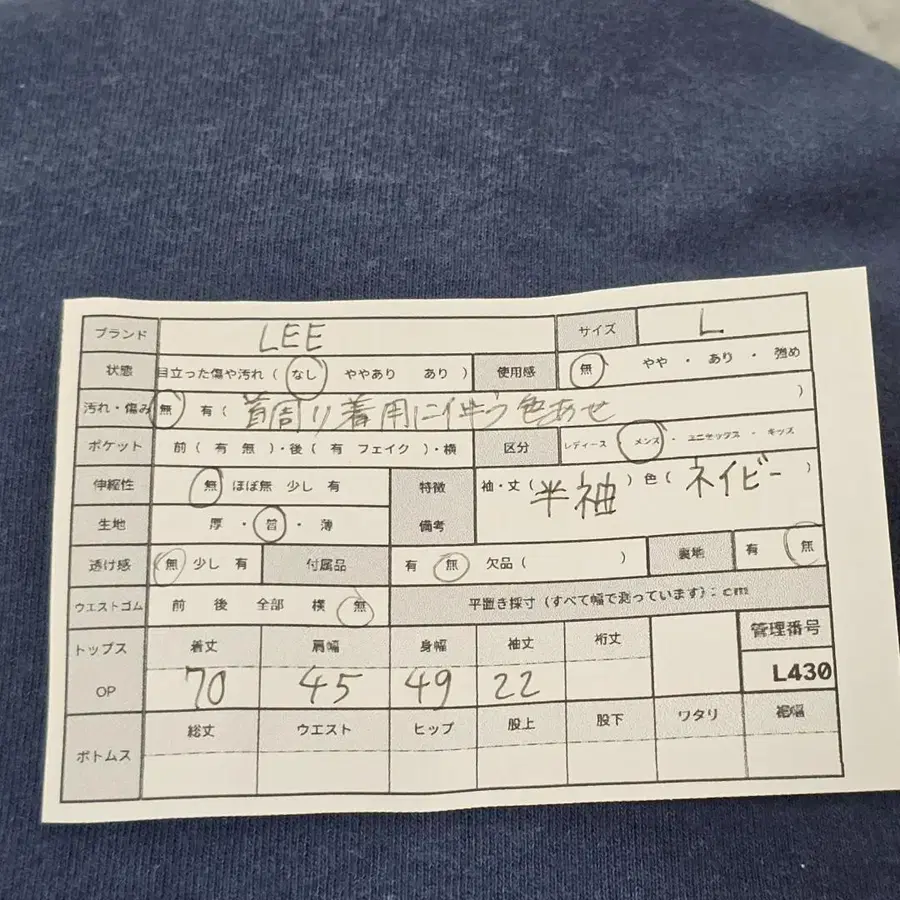 ブランド LEE サイズ L
状態 目立った傷や汚れ ( なし ややあり あり ) 使用感 無 やや ・ あり ・ 強め
汚れ・傷み 無 有 ( 首周り着用に伴う色あせ )
ポケット 前 ( 有 無 )・後 ( 有 フェイク )・横 区分 レディース メンズ ・ ユニセックス ・ キッズ
伸縮性 無 ほぼ無 少し 有 特徴 袖・丈 ( 半袖 ) 色 ( ネイビー )
生地 厚 ・ 普 ・ 薄 備考
透け感 無 少し 有 付属品 有 無 欠品 ( ) 裏地 有 無
ウエストゴム 前 後 全部 横 無 平置き採寸 (すべて幅で測っています) : cm
トップス 着丈 肩幅 身幅 袖丈 裄丈 管理番号
OP 70 45 49 22 L430
ボトムス 総丈 ウエスト ヒップ 股上 股下 ワタリ 裾幅